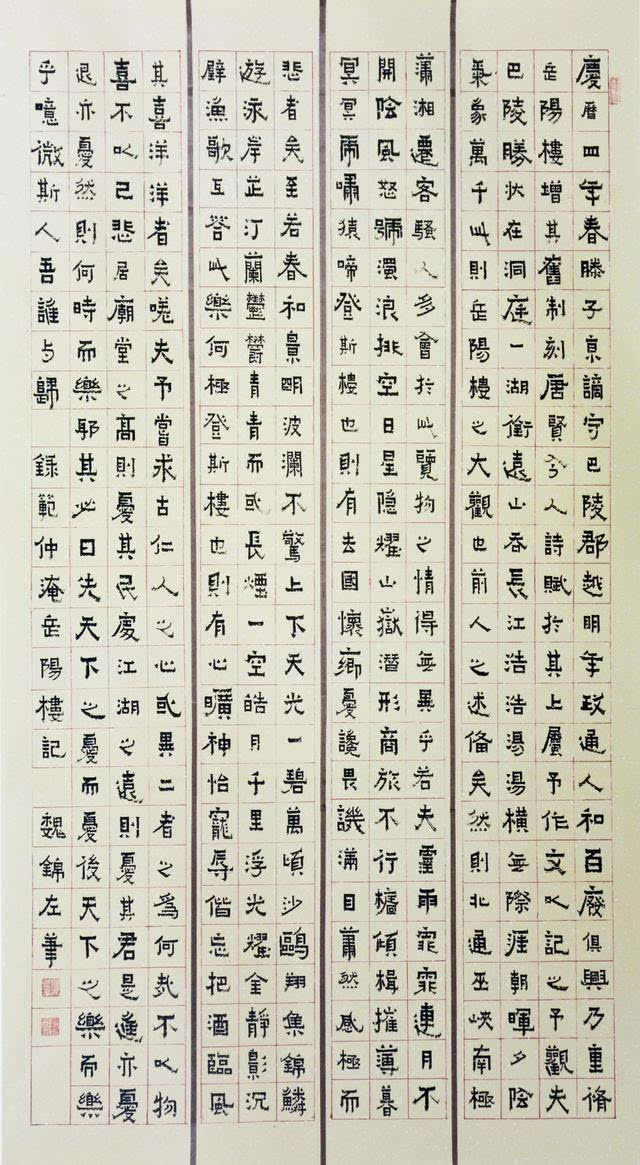 慶曆四年春滕子京謫守巴陵郡越明年政通人和百廢俱興乃重脩
岳陽樓增其舊制刻唐賢今人詩賦於其上屬予作文以記之予觀夫
巴陵勝狀在洞庭一湖銜遠山吞長江浩浩湯湯橫無際涯朝暉夕陰
氣象萬千此則岳陽樓之大觀也前人之述備矣然則北通巫峽南極
瀟湘遷客騷人多會於此覽物之情得無異乎若夫霪雨霏霏連月不
開陰風怒號濁浪排空日星隱耀山嶽潛形商旅不行檣傾楫摧薄暮
冥冥雨嘯猿啼登斯樓也則有去國懷鄉憂讒畏譏滿目蕭然感極而
悲者矣至若春和景明波瀾不驚上下天光一碧萬頃沙鷗翔集錦鱗
遊泳岸芷汀蘭鬱鬱青青而或長煙一空皓月千里浮光耀金靜影沉
璧漁歌互答此樂何極登斯樓也則有心曠神怡寵辱偕忘把酒臨風
其喜洋洋者矣嗟夫予嘗求古仁人之心或異二者之為何哉不以物
喜不以己悲居廟堂之高則憂其民處江湖之遠則憂其君是進亦憂
退亦憂然則何時而樂耶其必曰先天下之憂而憂後天下之樂而樂
乎噫微斯人吾誰与歸 錄範仲淹岳陽樓記 魏錦左筆